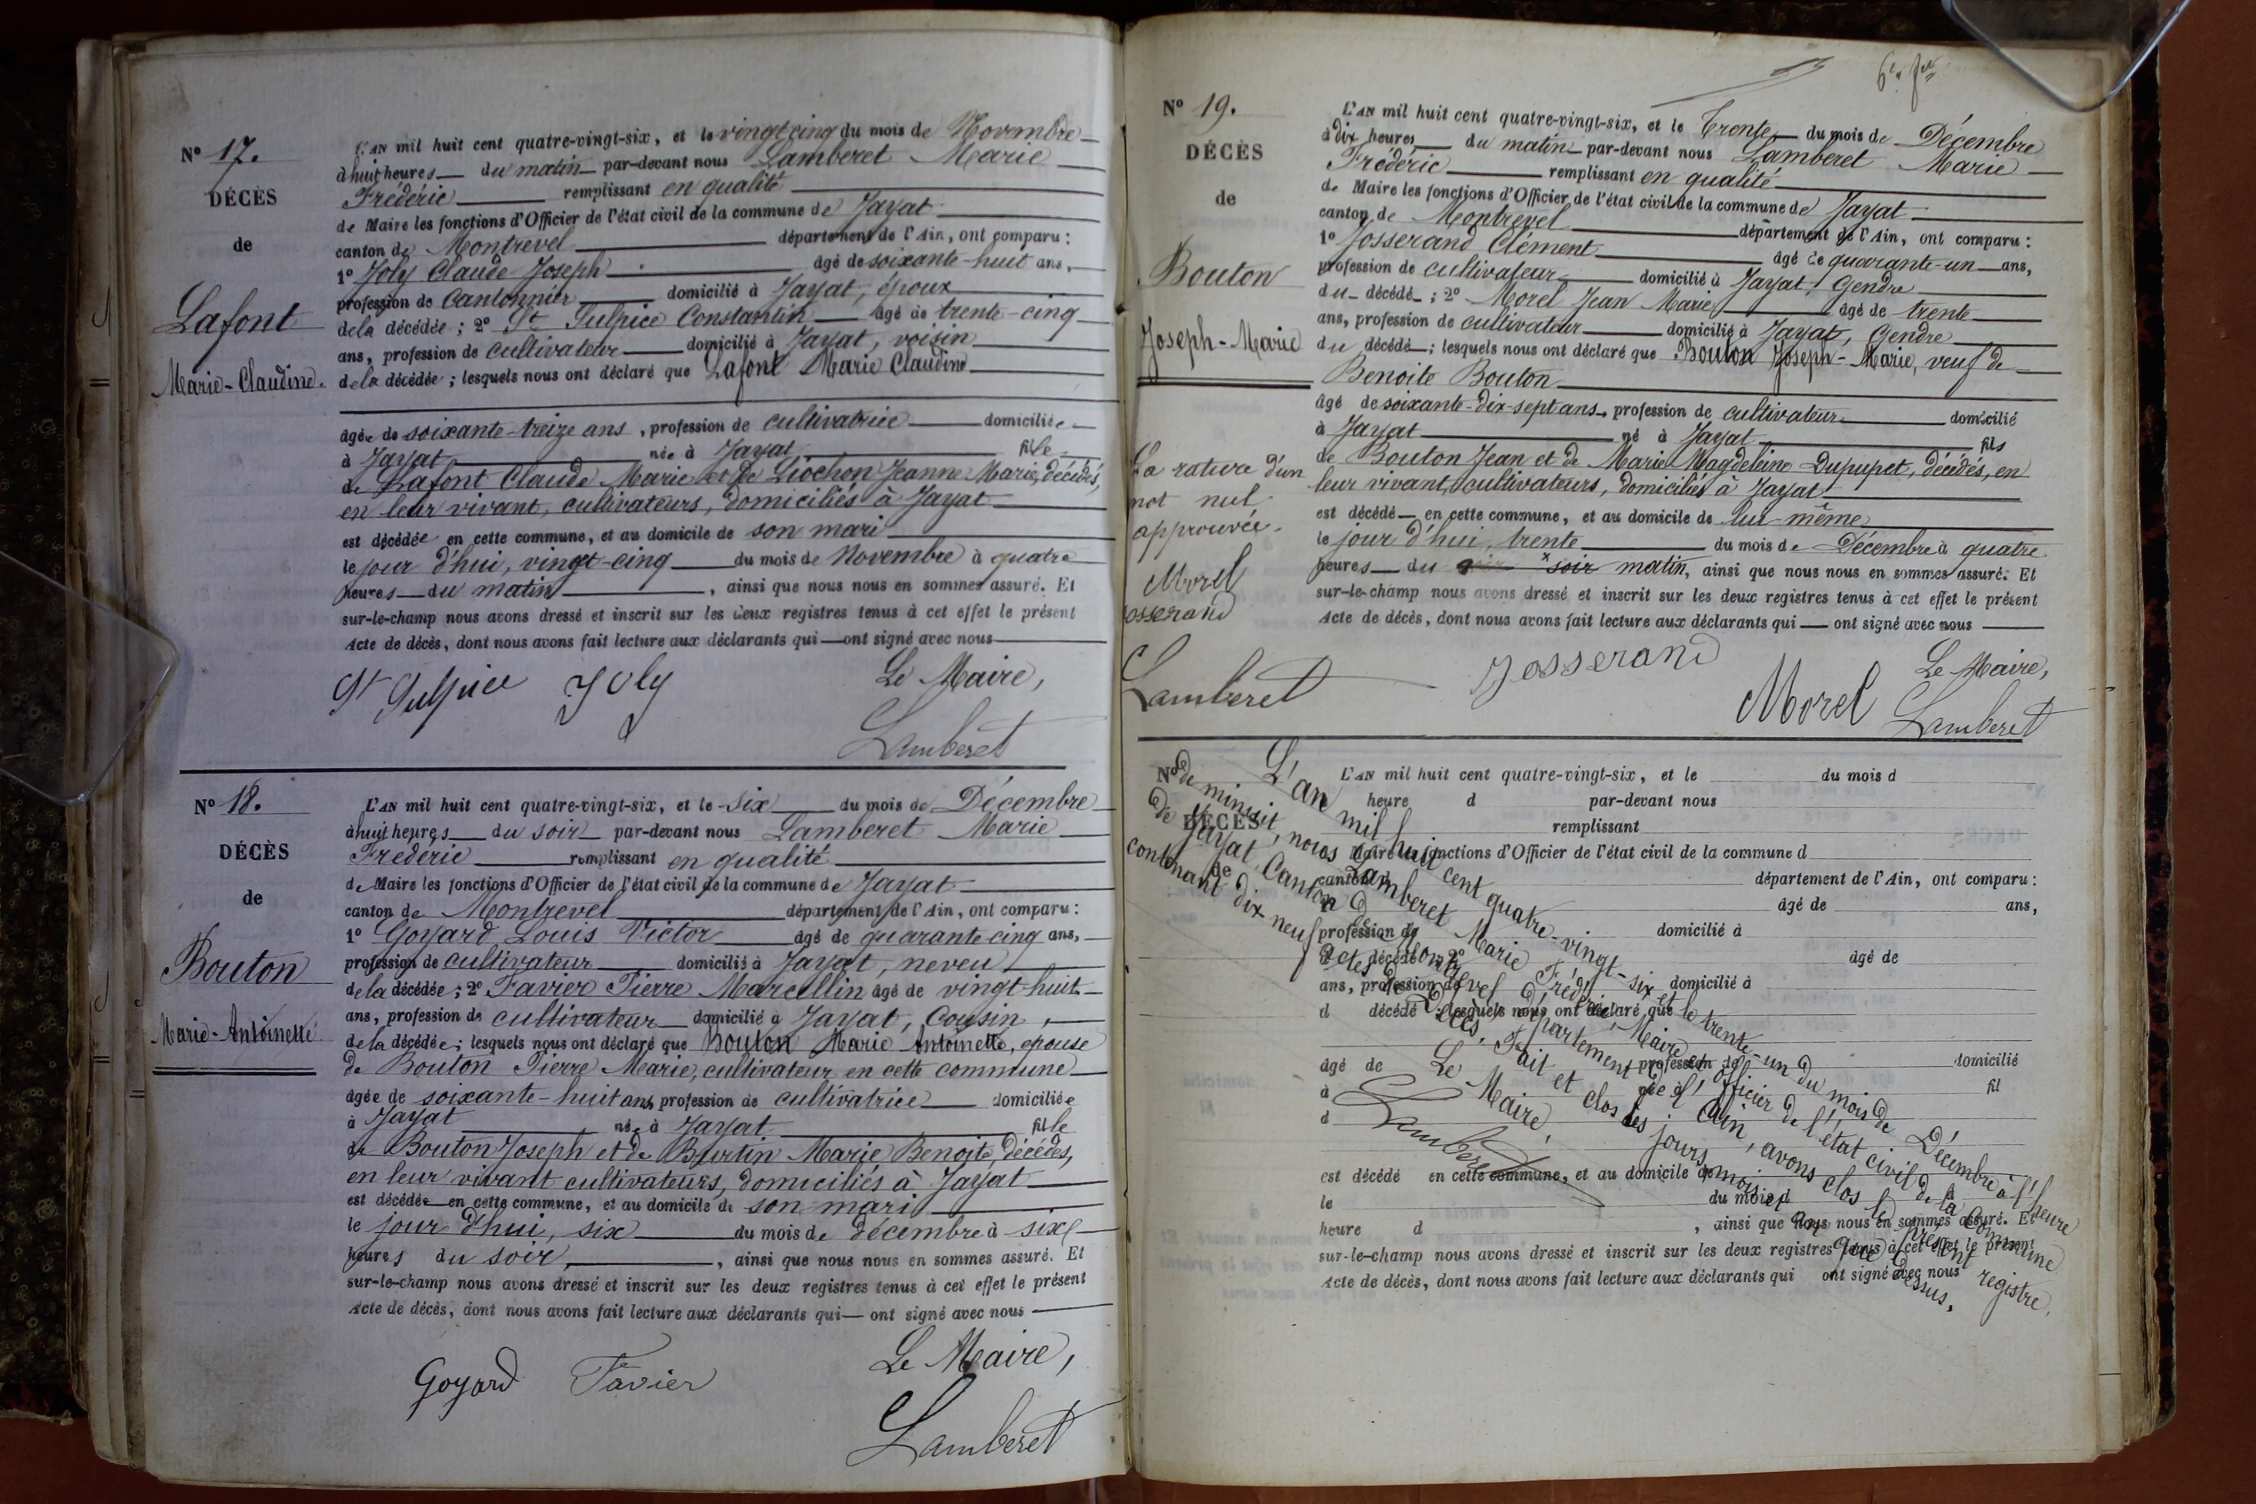 N° 17.
DÉCÈS
de
Lafont
Marie-Claudine.
L'AN mil huit cent quatre-vingt-six, et le vingt cinq du mois de Novembre
à huit heures du matin par-devant nous Lamberet Marie
Frédéric remplissant en qualité
de Maire les fonctions d'Officier de l'état civil de la commune de Jayat
canton de Montrevel département de l'Ain, ont comparu :
1° Joly Claude Joseph âgé de soixante-huit ans,
profession de Cantonnier domicilié à Jayat, époux
de la décédée ; 2° St Sulpice Constantin âgé de trente-cinq
ans, profession de cultivateur domicilié à Jayat, voisin
de la décédée ; lesquels nous ont déclaré que Lafont Marie Claudine
âgée de soixante-treize ans, profession de cultivatrice domiciliée
à Jayat née à Jayat fille
de Lafont Claude Marie et de Liochon Jeanne Marie, décédés,
en leur vivant, cultivateurs, domiciliés à Jayat
est décédée en cette commune, et au domicile de son mari
le jour d'hui, vingt-cinq du mois de Novembre à quatre
heures du matin, ainsi que nous nous en sommes assuré. Et
sur-le-champ nous avons dressé et inscrit sur les deux registres tenus à cet effet le présent
Acte de décès, dont nous avons fait lecture aux déclarants qui ont signé avec nous
St Sulpice Joly Le Maire,
Lamberet
N° 18.
DÉCÈS
de
Bouton
Marie-Antoinette
L'AN mil huit cent quatre-vingt-six, et le six du mois de Décembre
à huit heures du soir par-devant nous Lamberet Marie
Frédéric remplissant en qualité
de Maire les fonctions d'Officier de l'état civil de la commune de Jayat
canton de Montrevel département de l'Ain, ont comparu :
1° Goyard Louis Victor âgé de quarante cinq ans,
profession de cultivateur domicilié à Jayat, neveu
de la décédée ; 2° Favier Pierre Marcellin âgé de vingt-huit
ans, profession de cultivateur domicilié à Jayat, Cousin,
de la décédée ; lesquels nous ont déclaré que Bouton Marie Antoinette, épouse
de Bouton Pierre Marie, cultivateur en cette commune
âgée de soixante-huit ans, profession de cultivatrice domiciliée
à Jayat née à Jayat fille
de Bouton Joseph et de Burtin Marie Benoite décédés,
en leur vivant cultivateurs, domiciliés à Jayat
est décédée en cette commune, et au domicile de son mari
le jour d'hui, six du mois de décembre à six
heures du soir, ainsi que nous nous en sommes assuré. Et
sur-le-champ nous avons dressé et inscrit sur les deux registres tenus à cet effet le présent
Acte de décès, dont nous avons fait lecture aux déclarants qui ont signé avec nous
Goyard Favier Le Maire,
Lamberet
N° 19.
DÉCÈS
de
Bouton
Joseph-Marie
L'AN mil huit cent quatre-vingt-six, et le Trente du mois de Décembre
à dix heures du matin par-devant nous Lamberet Marie
Frédéric remplissant en qualité
de Maire les fonctions d'Officier de l'état civil de la commune de Jayat
canton de Montrevel département de l'Ain, ont comparu :
1° Josserand Clément âgé de quarante-un ans,
profession de cultivateur domicilié à Jayat, Gendre
du décédé ; 2° Morel Jean Marie âgé de trente
ans, profession de cultivateur domicilié à Jayat, Gendre
du décédé ; lesquels nous ont déclaré que Bouton Joseph-Marie, veuf de
Benoite Bouton
âgé de soixante-dix-sept ans, profession de cultivateur domicilié
à Jayat né à Jayat fils
de Bouton Jean et de Marie Magdeleine Dupupet, décédés, en
leur vivant, cultivateurs, domiciliés à Jayat
est décédé en cette commune, et au domicile de lui-même
le jour d'hui, trente du mois de Décembre à quatre
heures du soir matin, ainsi que nous nous en sommes assuré. Et
sur-le-champ nous avons dressé et inscrit sur les deux registres tenus à cet effet le présent
Acte de décès, dont nous avons fait lecture aux déclarants qui ont signé avec nous
La rature d'un
mot nul
approuvée.
Morel
Josserand
Lamberet
Josserand Le Maire,
Morel Lamberet
N°
DÉCÈS
de
L'AN mil huit cent quatre-vingt-six, et le du mois d
heure d par-devant nous
remplissant
de Maire les fonctions d'Officier de l'état civil de la commune d
canton d département de l'Ain, ont comparu :
1° âgé de ans,
profession de domicilié à
d décédé ; 2° âgé de
ans, profession de domicilié à
d décédé ; lesquels nous ont déclaré que
âgé de profession de domicilié
à né à fil
d
est décédé en cette commune, et au domicile de
le du mois d à
heure d , ainsi que nous nous en sommes assuré. Et
sur-le-champ nous avons dressé et inscrit sur les deux registres tenus à cet effet le présent
Acte de décès, dont nous avons fait lecture aux déclarants qui ont signé avec nous
L'an mil huit cent quatre-vingt-six et le trente-un du mois de Décembre à l'heure
de minuit, nous Lamberet Marie Frédéric, Maire et officier de l'état civil de la Commune
de Jayat, Canton de Montrevel département de l'Ain, avons clos le présent registre,
contenant dix neuf actes de Décès. Fait et clos les jours, mois et an que dessus.
Le Maire,
Lamberet